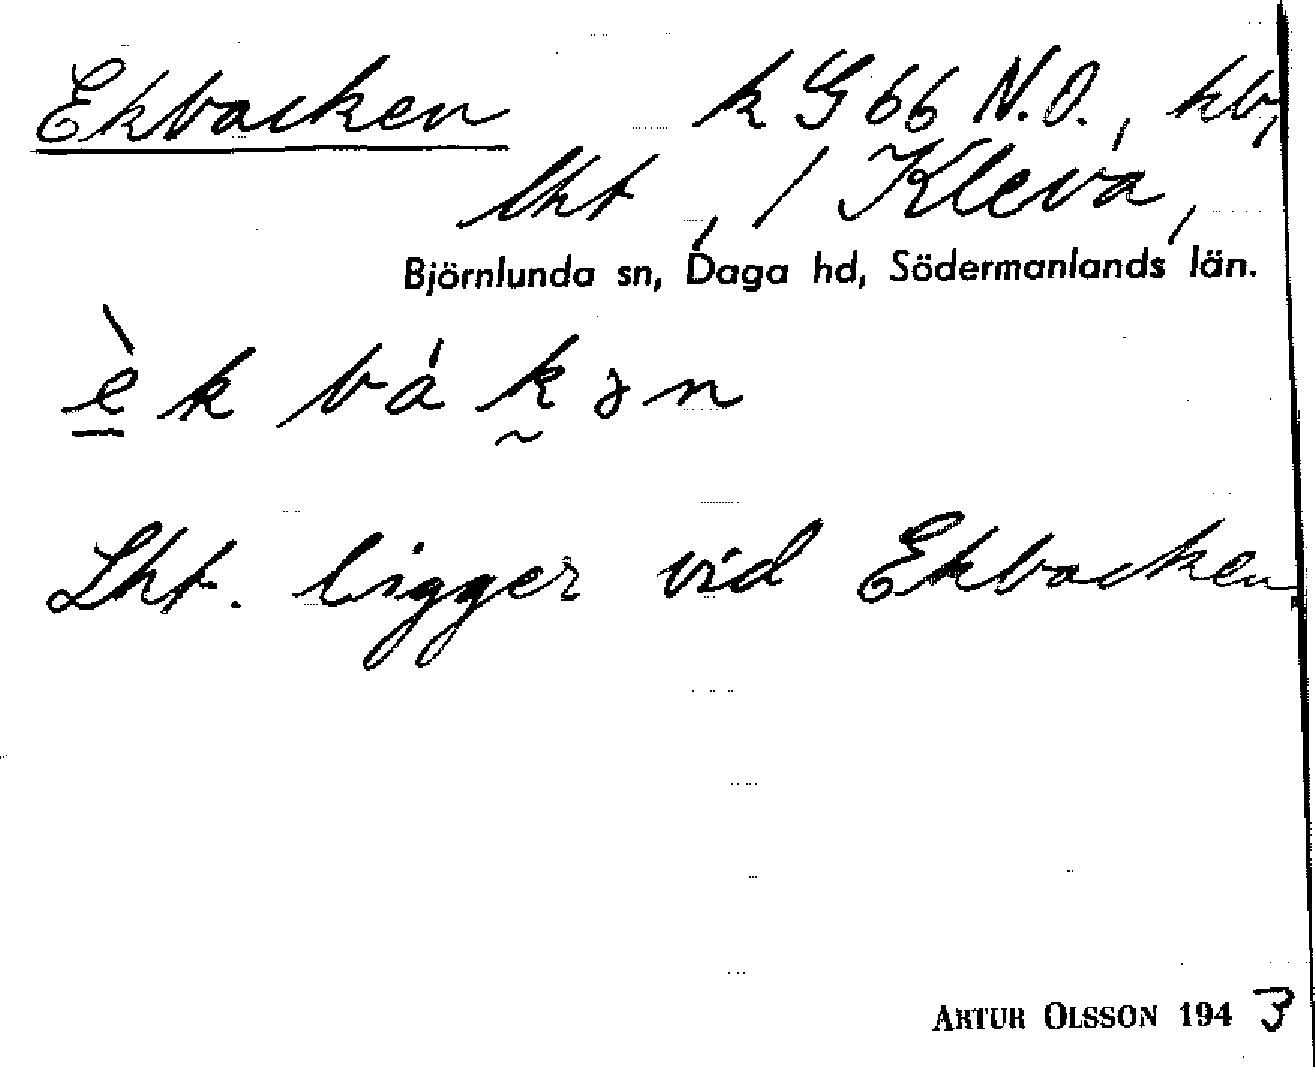 Ekbacken k G 66 N.O., kb,
lht, / Kleva,
Björnlunda sn, Daga hd, Södermanlands län.
è̲k bákən
Lht. ligger vid Ekbacken
ARTUR OLSSON 1943